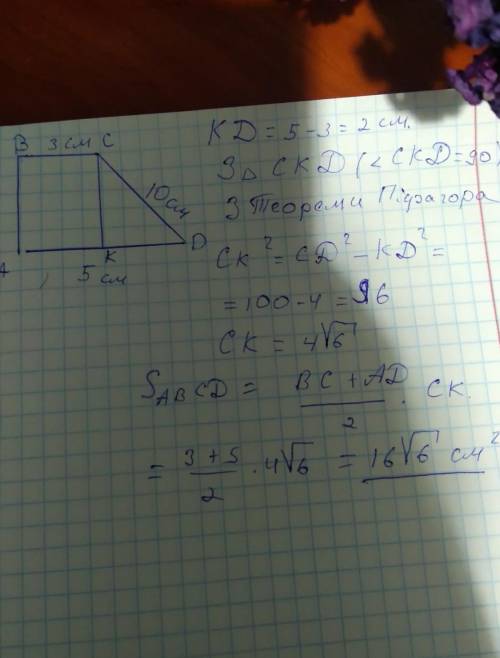 B 3 см C
10 см
A K D
5 см
KD = 5 - 3 = 2 см.
З △ CKD (∠CKD=90)
З Теореми Піфагора
CK² = CD² - KD² =
= 100 - 4 = 96
CK = 4√6
S_ABCD = (BC + AD)/2 · CK.
= (3 + 5)/2 · 4√6 = 16√6 см²